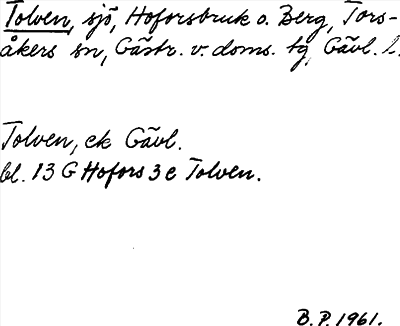 Tolven, sjö, Hoforsbruk o. Berg, Tors-
åkers sn, Gästr. v. doms. tg, Gävl. l.
Tolven, ek Gävl.
bl. 13 G Hofors 3 e Tolven.
B.P. 1961.